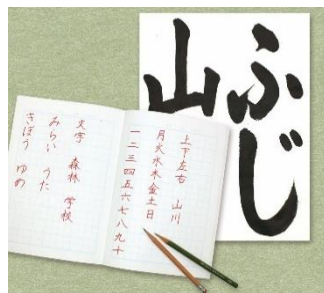 ふじ
山
上下左右　山川
月火水木金土日
一二三四五六七八九十
文字　森林　学校
みらい　うた
きぼう　ゆめ